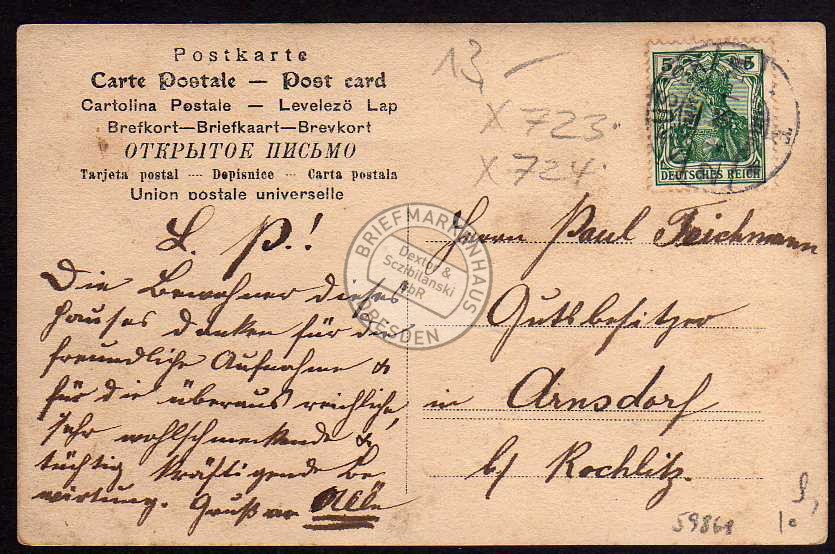 Postkarte
Carte Postale — Post card
Cartolina Postale — Levelező Lap
Brefkort—Briefkaart—Brevkort
ОТКРЫТОЕ ПИСЬМО
Tarjeta postal — Dopisnice — Carta postala
Union postale universelle
13,-
X 723.
X 724.
5 5
DEUTSCHES REICH
L. P.!
Die Bewohner dieses
Hauses danken für die
freundliche Aufnahme &
für die überaus reichliche,
sehr wohlschmeckende &
tüchtig kräftigende Be-
wirtung. Gruß an Alle
Herrn Paul Teichmann
Gutsbesitzer
in Arnsdorf
b/ Rochlitz.
BRIEFMARKENHAUS
Dextur & Sczibilanski GbR
DRESDEN
59868